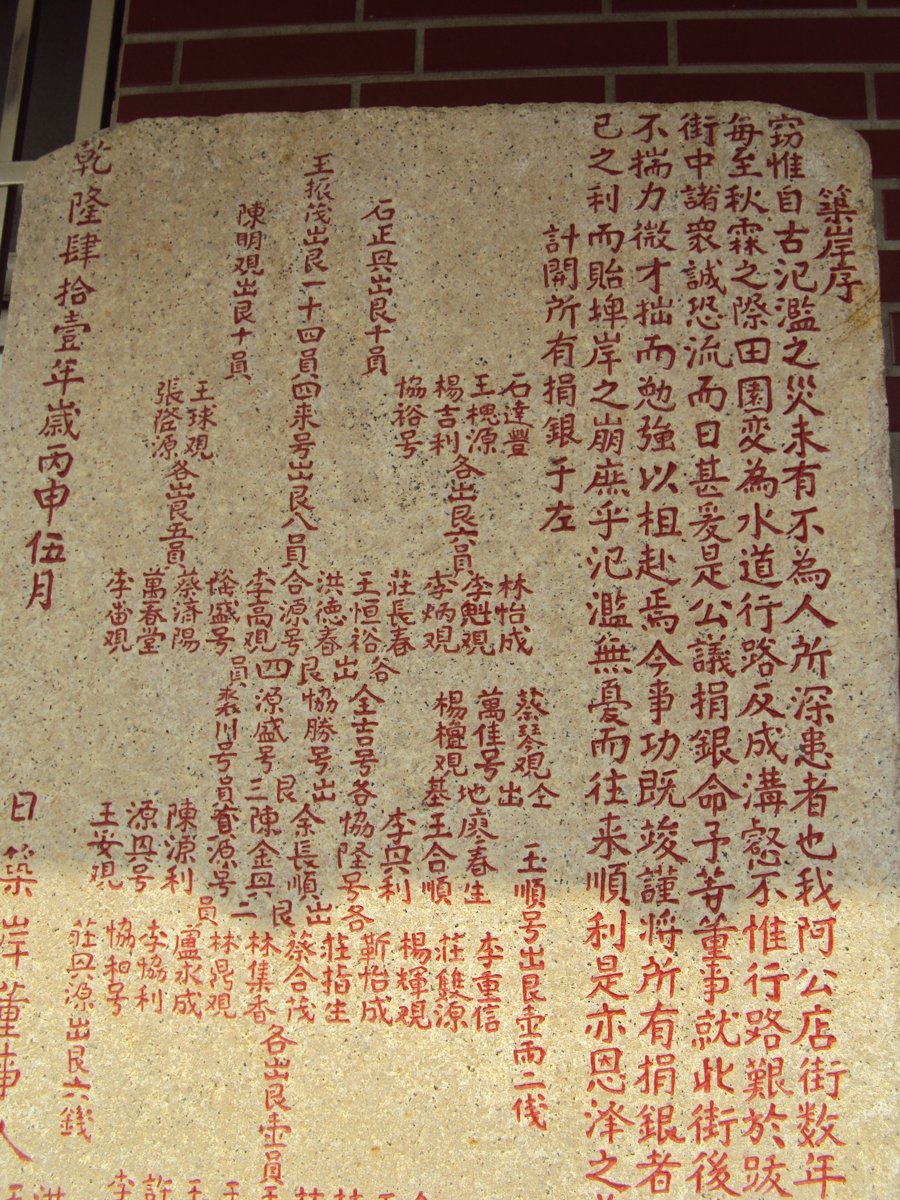 築岸序
窃惟自古氾濫之災未有不為人所深患者也我阿公店街数年
每至秋霖之際田園変為水道行路反成溝壑不惟行路艱於跋
街中諸衆誠恐流而日甚爰是公議捐銀命予等董事就此街後
不揣力微才拙而勉強以相赴焉今事功既竣謹將所有捐銀者
己之利而貽埤岸之崩庶乎氾濫無憂而往来順利是亦恩泽之
計開所有捐銀于左
石達豐
林怡成
蔡琴观
玉順号出艮壶両二伐
王楒源
李魁观
萬隹号
李重信
石正兴出艮十員
楊吉利
各出艮六員
李炳观
楊檀观
廖春生
莊雙源
協裕号
莊長春
王合順
楊輝观
李兴利
靳怡成
王振茂出艮一十四員
四来号出艮八員
王恒裕
全吉号各
協隆号各
莊指生
洪徳春
協勝号出
余長順出
蔡合茂
合源号
源盛号
陳金兴
林集香
陳明观出艮十員
李高观
林鼎观
各出艮壶員
王球观
盧永成
張啓源
各出艮五員
蔡済陽
陳源利
李協利
萬春堂
源兴号
協和号
李畨观
王妥观
莊兴源出艮六銭
乾隆肆拾壹年歲丙申伍月
日築岸董事人